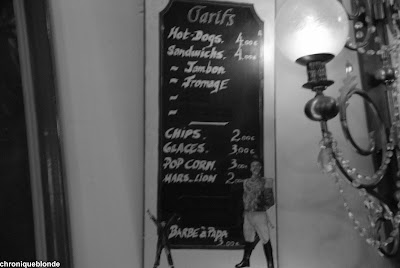 Tarifs
Hot-Dogs. 4.00€
Sandwichs. 4.00€
~ Jambon
~ Fromage
~
~
CHIPS. 2.00€
GLACES. 3.00€
POP CORN. 3.00€
MARS_LION 2.00€
BARBE à PAPA
3.00€
chroniqueblonde